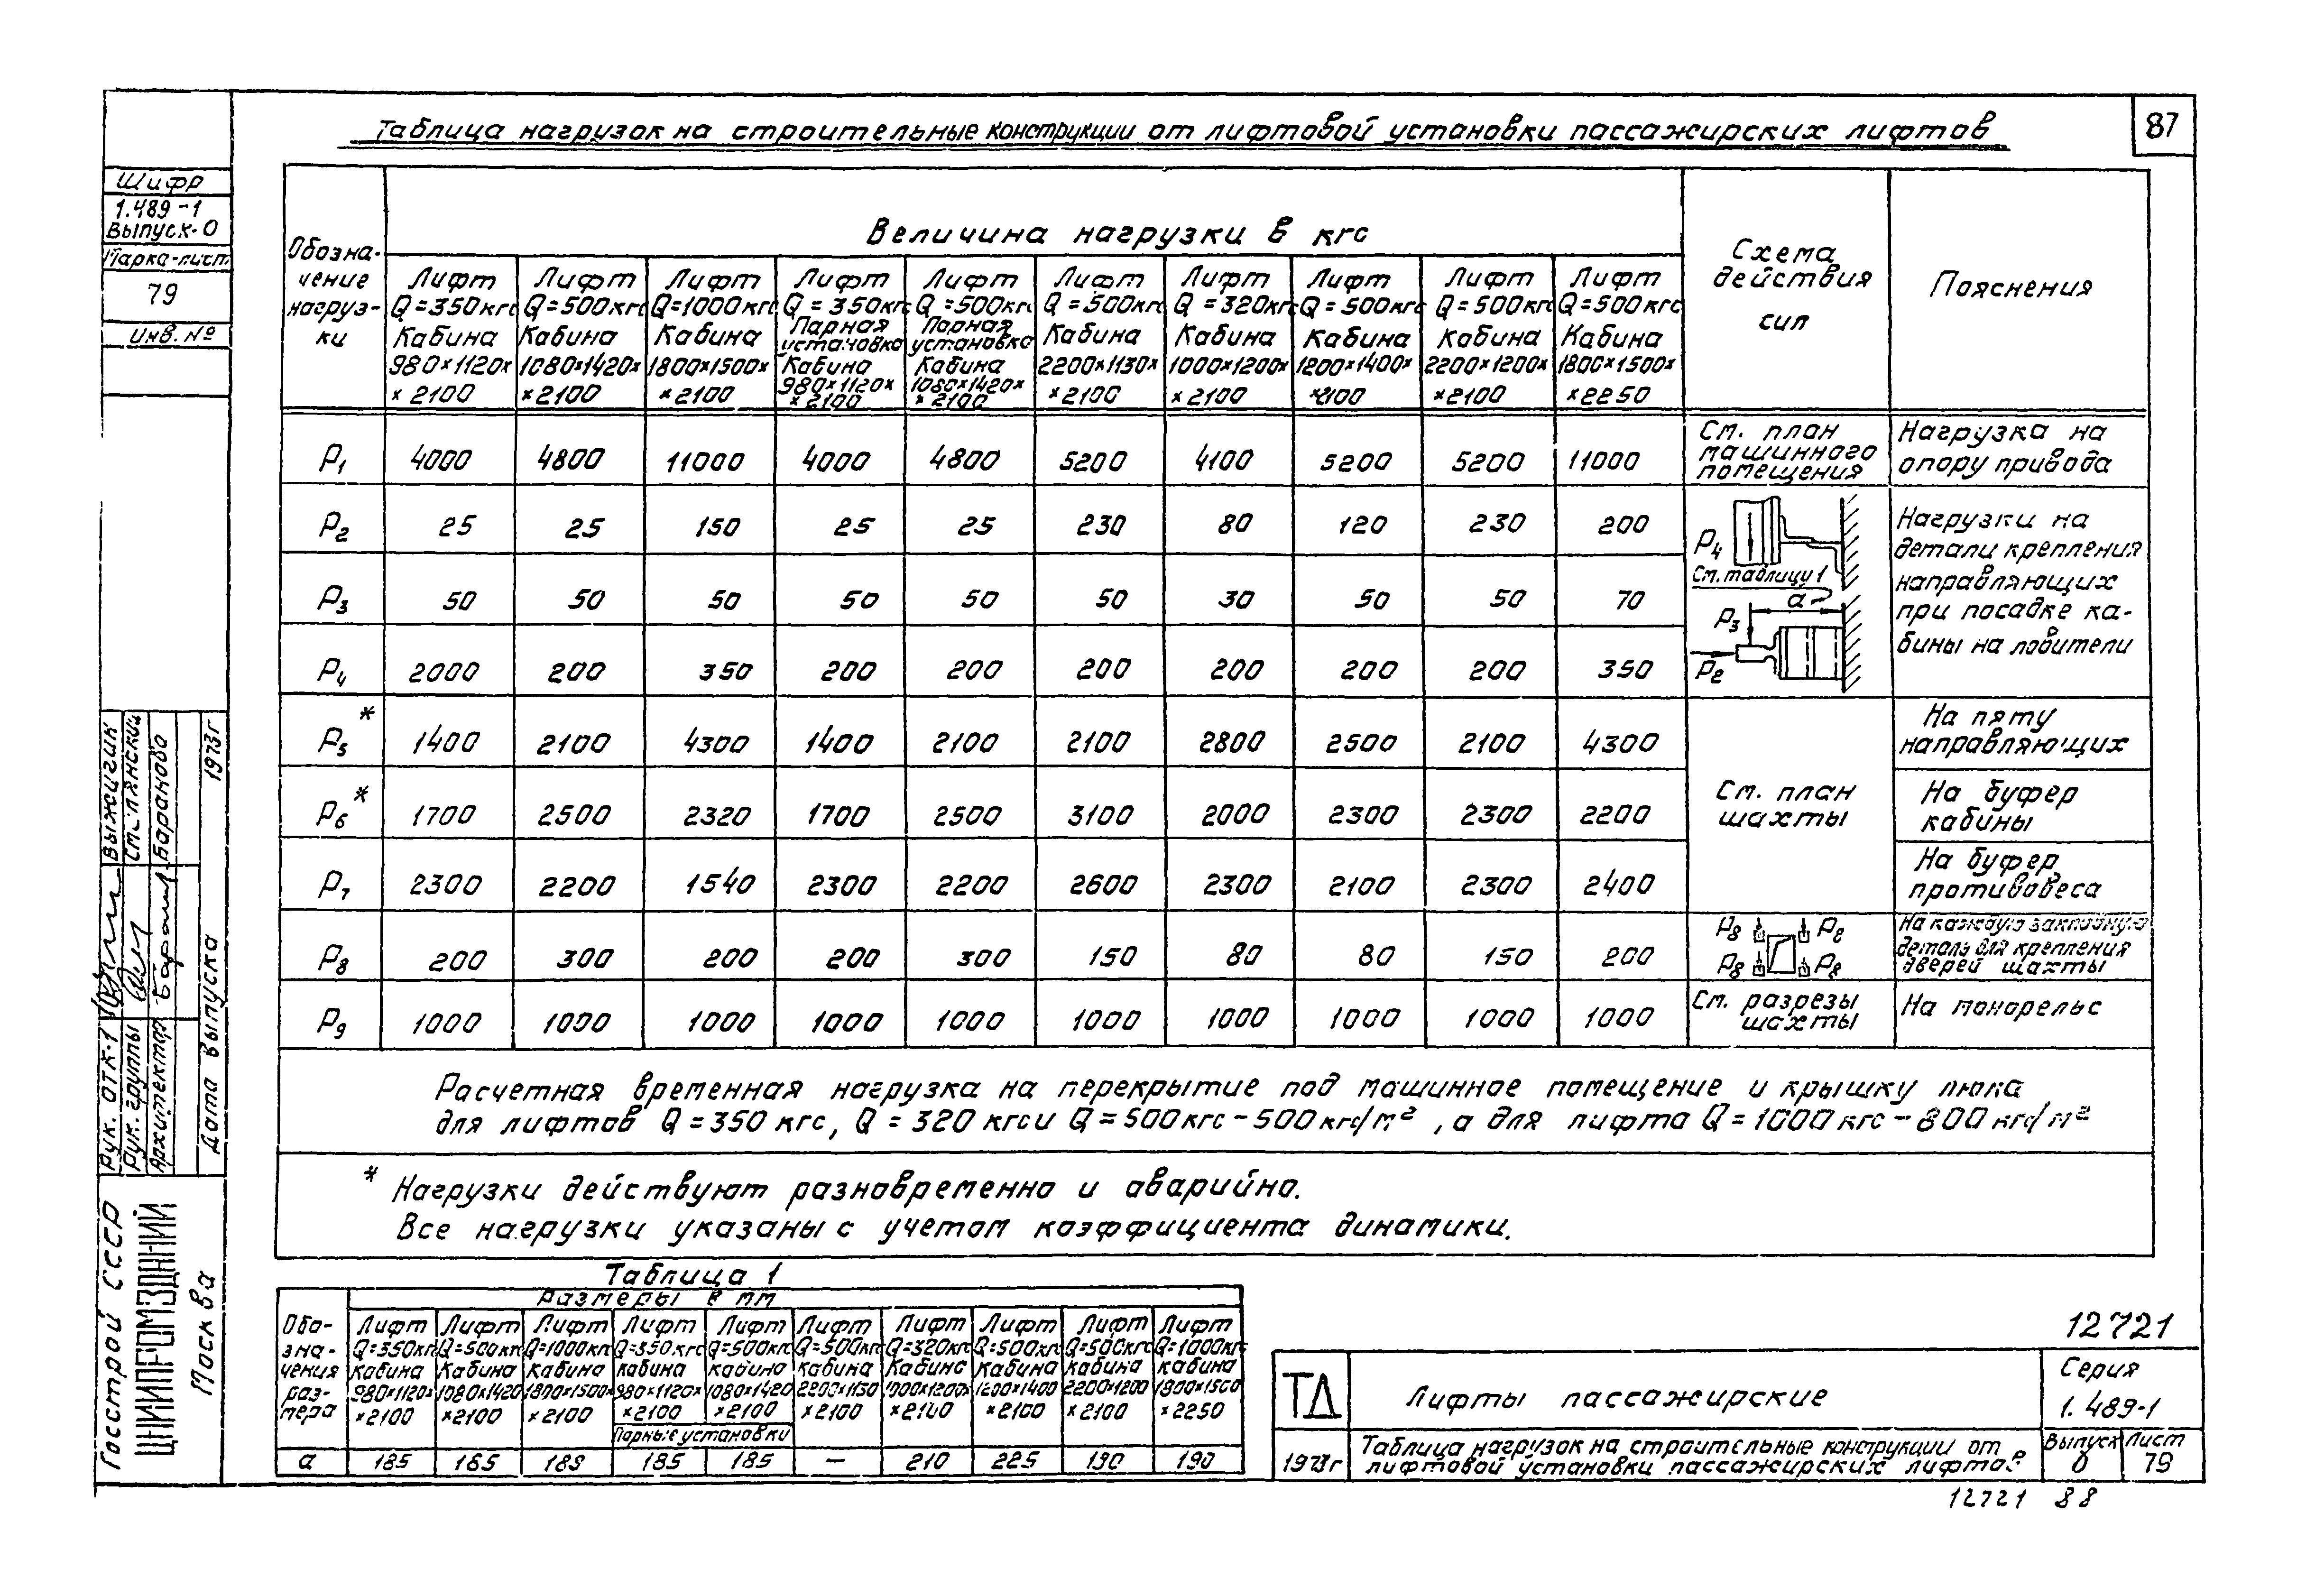 87
Таблица нагрузок на строительные конструкции от лифтовой установки пассажирских лифтов
Шифр
1.489-1
Выпуск-0
Марка-лист
79
Инв. №
Обозна-
чение
нагруз-
ки
Величина нагрузки в кгс
Схема
действия
сил
Пояснения
Лифт Q=350кгс Кабина 980×1120× ×2100
Лифт Q=500кгс Кабина 1080×1420× ×2100
Лифт Q=1000кгс Кабина 1800×1500× ×2100
Лифт Q=350кгс Парная установка Кабина 980×1120× ×2100
Лифт Q=500кгс Парная установка Кабина 1080×1420× ×2100
Лифт Q=500кгс Кабина 2200×1130× ×2100
Лифт Q=320кгс Кабина 1000×1200× ×2100
Лифт Q=500кгс Кабина 1200×1400× ×2100
Лифт Q=500кгс Кабина 2200×1200× ×2100
Лифт Q=500кгс Кабина 1800×1500× ×2250
P1 4000 4800 11000 4000 4800 5200 4100 5200 5200 11000
См. план
машинного
помещения
Нагрузка на
опору привода
P2 25 25 150 25 25 230 80 120 230 200
P3 50 50 50 50 50 50 30 50 50 70
P4 2000 200 350 200 200 200 200 200 200 350
P4
См. таблицу 1
a
P3
P2
Нагрузки на
детали крепления
направляющих
при посадке ка-
бины на ловители
P5* 1400 2100 4300 1400 2100 2100 2800 2500 2100 4300
На пяту
направляющих
P6* 1700 2500 2320 1700 2500 3100 2000 2300 2300 2200
См. план
шахты
На буфер
кабины
P7 2300 2200 1540 2300 2200 2600 2300 2100 2300 2400
На буфер
противовеса
P8 200 300 200 200 300 150 80 80 150 200
P8 P8
P8 P8
На каждую закладную
деталь для крепления
дверей шахты
P9 1000 1000 1000 1000 1000 1000 1000 1000 1000 1000
См. разрезы
шахты
На монорельс
Расчетная временная нагрузка на перекрытие под машинное помещение и крышку люка
для лифтов Q=350 кгс, Q=320 кгс и Q=500кгс-500кгс/м², а для лифта Q=1000кгс-800кгс/м²
* Нагрузки действуют разновременно и аварийно.
Все нагрузки указаны с учетом коэффициента динамики.
Таблица 1
Обо-
зна-
чения
раз-
мера
Размеры в мм
Лифт Q=350кгс Кабина 980×1120× ×2100
Лифт Q=500кгс Кабина 1080×1420 ×2100
Лифт Q=1000кгс Кабина 1800×1500× ×2100
Лифт Q=350кгс Кабина 980×1120× ×2100
Лифт Q=500кгс Кабина 1080×1420 ×2100
Парные установки
Лифт Q=500кгс Кабина 2200×1130 ×2100
Лифт Q=320кгс Кабина 1000×1200× ×2100
Лифт Q=500кгс Кабина 1200×1400 ×2100
Лифт Q=500кгс Кабина 2200×1200 ×2100
Лифт Q=1000кгс Кабина 1800×1500 ×2250
a 185 185 185 185 — 210 225 190 190
12721
ТД
Лифты пассажирские
Серия
1.489-1
1973г
Таблица нагрузок на строительные конструкции от
лифтовой установки пассажирских лифтов
Выпуск
0
Лист
79
12721 88
Госстрой СССР
ЦНИИПРОМЗДАНИЙ
Москва
Рук. ОТК-1 Выжигин
Рук. группы
Архитектор Баранова
Дата выпуска 1973г